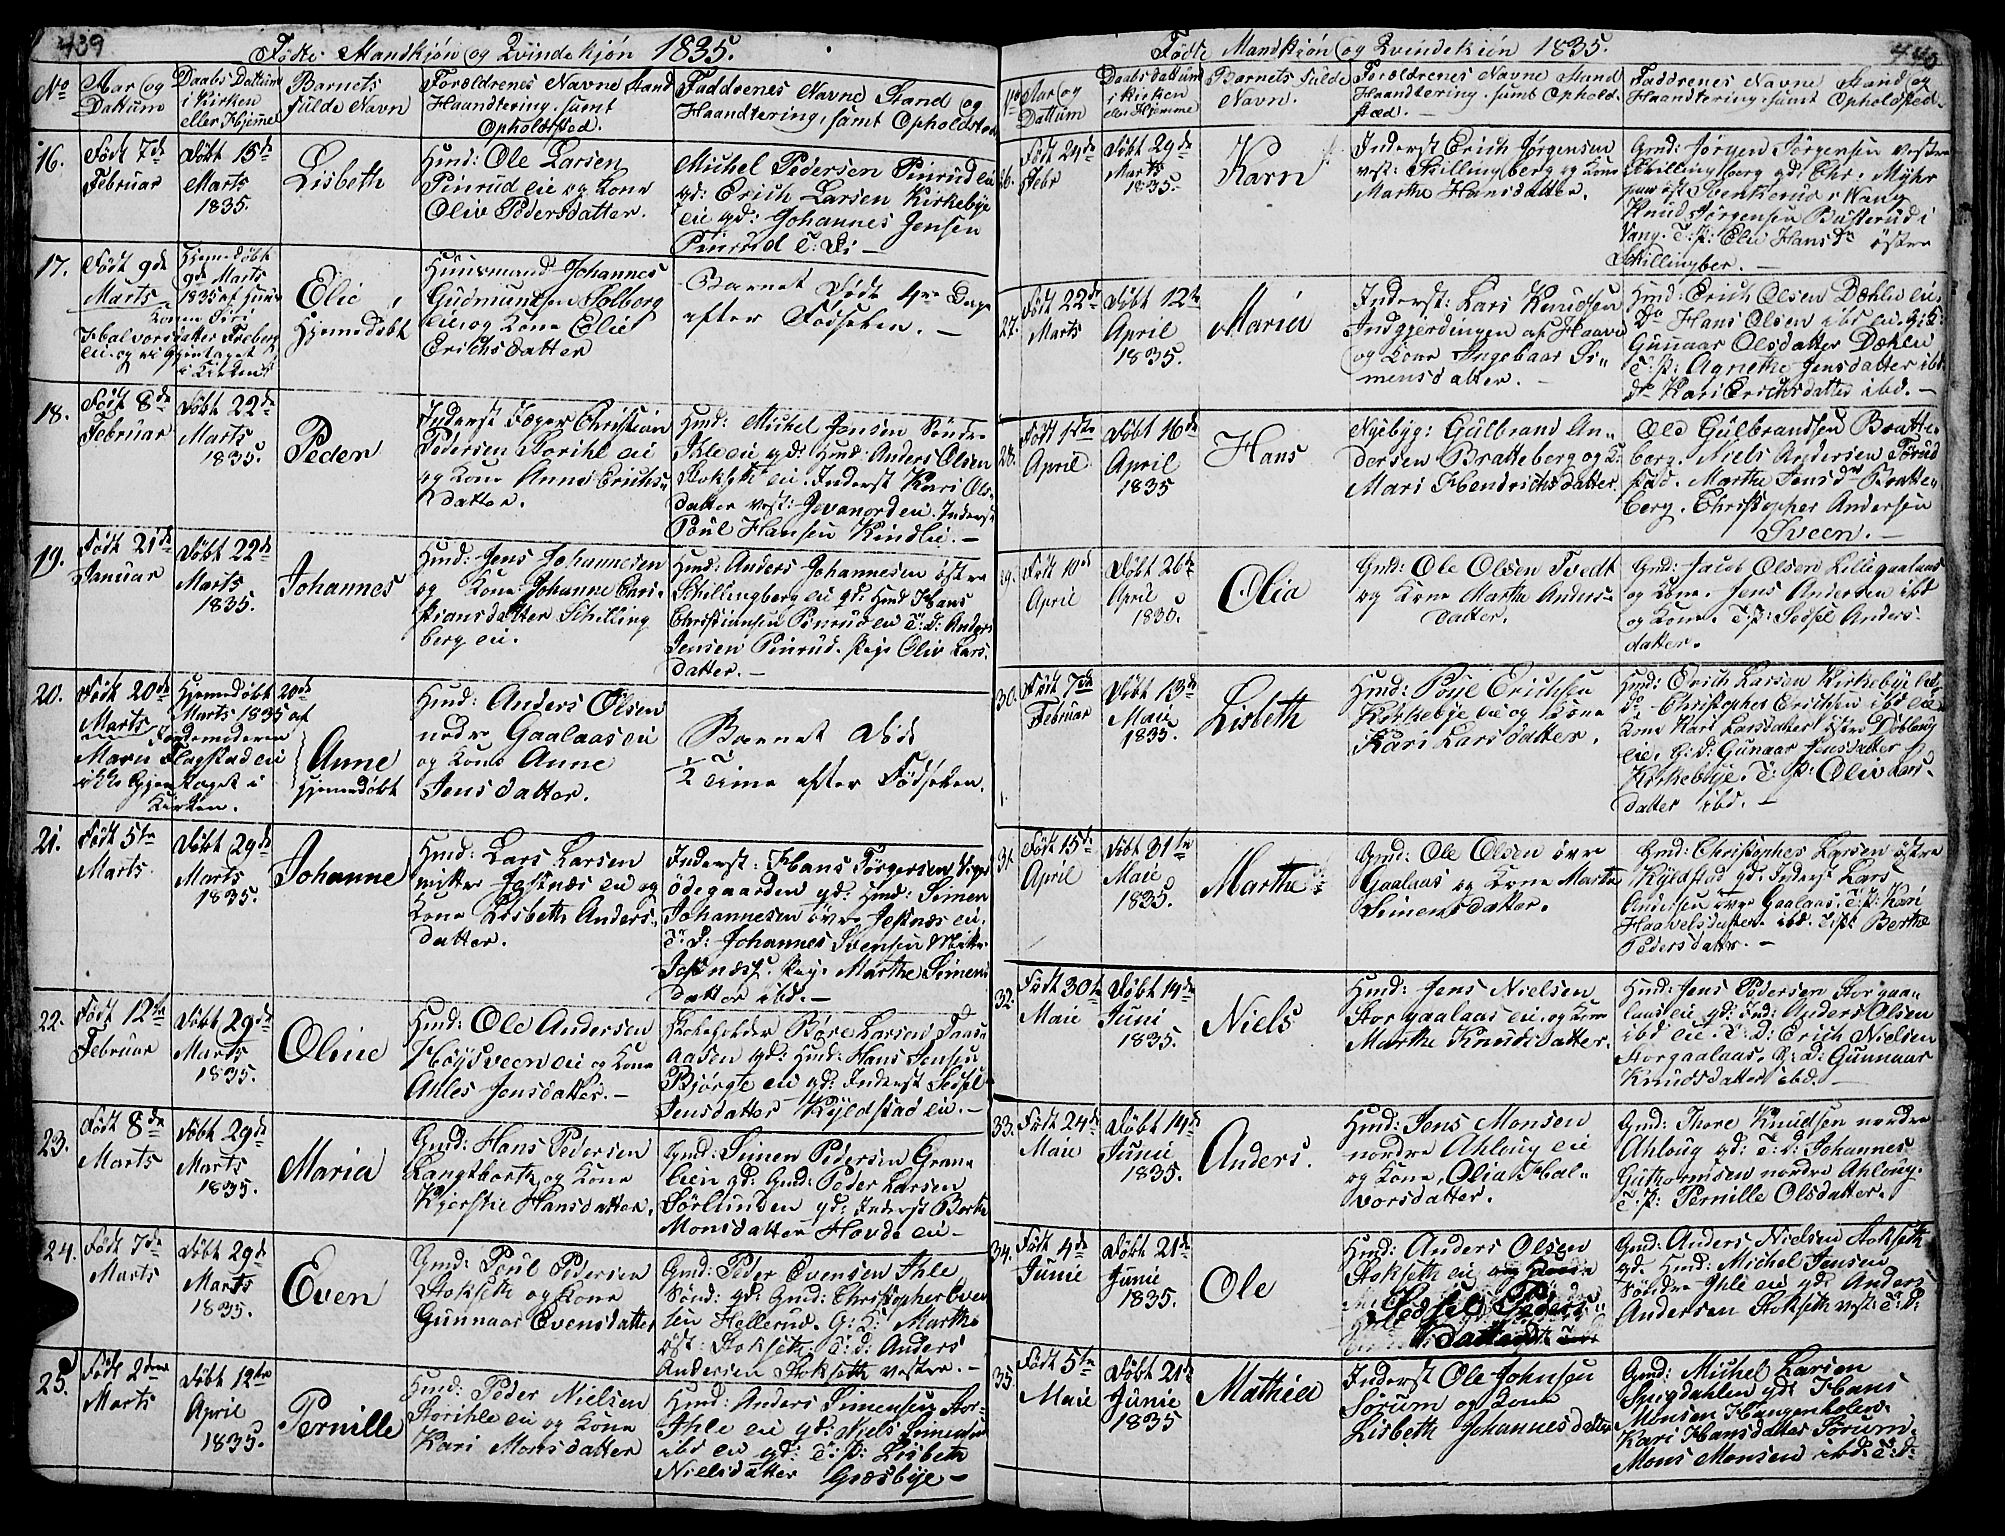 439
Fødte Mandkjøn og Qvindekjøn 1835.
No
Aar og
Dattum
Daabs Dattum
i Kirken
eller Hjemme
Barnets
fulde Navn
Forældrenes Navne Stand
Haandtering, samt
Opholdsted.
Faddrenes Navne Stand og
Haandtering, samt Opholdsted
16.
Født 7de
Februar
Døbt 15de
Marts
1835.
Lisbeth
Hmd: Ole Larsen
Pinrud eie og Kone
Oliv Pedersdatter.
Michel Pedersen Pinrud eie
gd: Erich Larsen Kirkebye
eie gd: Johannes Jensen
Pinrud
17.
Født 9de
Marts
Hjemmedøbt
9de Marts
1835 af
Konen Siri
Halvorsdatter Freberg
eie og
i Kirken
Elie
Hjemmedøbt
Huusmand Johannes
Gudmundsen Solberg
eie og Kone Elie
Erichsdatter
Barnet Døde 4re Dage
efter Fødselen. —
18.
Født 8de
Februar
Døbt 22de
Marts
1835.
Peder
Inderst Jæger Christian
Pedersen Storihle eie
og Kone Anne Erichs-
datter.
Hmd: Michel Jensen Søndre
Ihle eie gd: Hmd: Anders Olsen
Stokseth eie. Inderst Kari Ols-
datter vest: Jevanord eie. Inderst
Poul Hansen Kindlie. —
19.
Født 21de
Januar
Døbt 22de
Marts
1835.
Johannes
Hmd: Jens Johannesen
og Kone Johanne Chri-
stiansdatter Schilling
berg eie.
Hmd: Anders Johannesen østre
Schillingberg eie gd: Hmd Hans
Christiansen Pinrud eie T: D: Anders
Jensen Pinrud. Pige Oliv Lars-
datter. —
20.
Født 20de
Marts
Hjemmedøbt 20de
Marts 1835 af
Jordemoderen
Maren Flagstad eie
ikke Igjentaget i
Kirken.
Anne
Hjemmedøbt
Hmd: Anders Olsen
nedre Gaalaas eie
og Kone Anne
Jensdatter.
Barnet Døde
1/2 Time efter Fødselen.
21.
Født 5te
Marts
Døbt 29de
Marts
1835.
Johanne
Hmd: Lars Larsen
mitter Jesnæs eie og
Kone Lisbeth Anders-
datter.
Inderst: Hans Torgersen
Ødegaarden gd: Hmd: Simen
Johannesen øvre Jesnæs eie.
T: D: Johannes Svensen Mitter
Jesnæs. Pige Marthe Simens
datter ibd. —
22.
Født 12te
Februar
Døbt 29de
Marts
1835.
Oline
Hmd: Ole Andersen
Høysveen eie og Kone
Ahles Jensdatter. —
Skoleholder Børe Larsen
aasen gd: Hmd: Hans Jensen
Bjørgte eie gd: Inderst Sedsel
Jensdatter Kyldstad eie. —
23.
Født 8de
Marts
Døbt 29de
Marts
1835.
Maria
Gmd: Hans Pedersen
og Kone
Kjerstie Hansdatter.
Gmd: Simen Pedersen Gran-
lien gd: Gmd: Peder Larsen
Sørlunden gd: Inderst Berte
Monsdatter Hovde eie —
24.
Født 7de
Marts
Døbt 29de
Marts
1835.
Even
Gmd: Poul Pedersen
Stokseth og Kone
Gunnaar Evensdatter
Gmd: Peder Evensen Ihle
Sønd: gd: Gmd: Christopher Even
sen Hellerud. G: K: Marthe
øst: Stokseth. T: D: Anders
Andersen Stokseth vestre. —
25.
Født 2den
Marts
Døbt 12te
April
1835.
Pernille
Hmd: Peder Nielsen
Storihle eie og Kone
Kari Monsdatter
Hmd: Anders Simensen Stor-
Ihle eie gd: Niels Simensen
ibd eie gd: T: P: Lisbeth
Nielsdatter Græsbye —
440
Fødte Mandkjøn og Qvindekjøn 1835.
No
Aar og
Dattum
Daabsdattum
i Kirken
eller Hjemme
Barnets fulde
Navn.
Forældrenes Navne Stand
Haandtering, samt Ophold-
sted. —
Faddrenes Navne Stand og
Haandtering, samt Opholdsted.
26.
Født 24de
Febr
Døbt 29de
Marts
1835.
Karn
Inderst Erich Jørgensen
vest: Skillingberg og Kone
Marthe Hansdatter.
Gmd: Jørgen Jørgensen vestre
Skillingberg gd: Chr: Myhr
i Vang
Knud Jørgensen i
Vang. T: P: Elie Hansdr østre
Skillingber. —
27.
Født 22de
Marts
Døbt 12te
April
1835.
Maria
Inderst: Lars Knudsen
Indgjerdingen af Haave
og Kone Ingebaar Si-
mensdatter. —
Hmd: Erich Olsen Dæhlie eie.
Do Hans Olsen ibd eie. G: K:
Gunnaar Olsdatter Dæhlie
T: P: Agnethe Jensdatter ibd.
do Kari Erichsdatter ibd. —
28.
Født 1ste
April
Døbt 16de
April
1835
Hans
Nyebyg: Gulbrand An-
dersen Bratteberg og K:
Mari Hendrichsdatter
Ole Gulbrandsen Bratte-
berg. Niels Andersen Førud
stad. Marthe Jensdr Bratte-
berg. Christopher Andersen
Sveen. —
29.
Født 10de
April
Døbt 26de
April
1835.
Olia
Gmd: Ole Olsen Tvedt
og Kone Marthe Anders-
datter.
Gmd: Jacob Olsen Lillegaalaas
og Kone. Jens Andersen ibd
og Kone. T: P: Sedsel Anders-
datter.
30.
Født 7de
Februar
Døbt 13de
Maie
1835.
Lisbeth
Hmd: Poul Erichsen
Kirkebye eie og Kone
Kari Larsdatter.
Hmd: Erich Larsen Kirkebye eie
do Christopher Erichsen ibd eie
Kone Kari Larsdatter østre Dobloug
eie. P: D: Gunaar Jensdatter
Kirkebye. T: P: Oliv Lars-
datter ibd. —
31.
Født 15de
April
Døbt 31te
Maie
1835.
Marthe
Gmd: Ole Olsen øvre
Gaalaas og Kone Marte
Simensdatter.
Hmd: Christopher Larsen østre
Kyldstad gd: Inderst Lars
øvre Gaalaas. T: P: Kari
Haavelsdatter ibd. T: P: Berthe
Pedersdatter. —
32.
Født 30te
Maie
Døbt 14de
Juni
1835.
Niels
Hmd: Jens Nielsen
Storgaalaas eie og Kone
Marthe Knudsdatter.
Hmd: Jens Pedersen Storgaa-
laas eie gd: Ind: Anders Olsen
ibd eie. T: D: Erich Nielsen
Storgaalaas. P: D: Gunnaar
Knudsdatter ibd. —
33.
Født 24de
Maie
Døbt 14de
Junie
1835.
Anders.
Hmd: Jens Monsen
nordre Ahloug eie
og Kone, Olia Hal-
vorsdatter.
Gmd: Thore Knudsen nordre
Ahloug gd: T: D: Johannes
Guthormsen nordre Ahloug.
T: P: Pernille Olsdatter.
34.
Født 4de
Junie
Døbt 21de
Junie
1835.
Ole
Hmd: Anders Olsen
Stokseth eie og Kone
Sedsel Peders-
Datter
Gmd: Anders Nielsen Stokseth
gd: Hmd: Michel Jensen
Søndre Ihle eie gd: Anders
Andersen Stokseth vest: T: D:
35
Født 5te
Maie
Døbt 21de
Junie
1835
Mathia
Inderst Ole Johnsen
Sørum og Kone
Lisbeth Johannesdatter
Gmd: Michel Larsen
Snigdahlen gd: Hans
Monsen Hangenholen.
Kari Hansdatter Sørum.
Mons Monsen ibd: T: D: